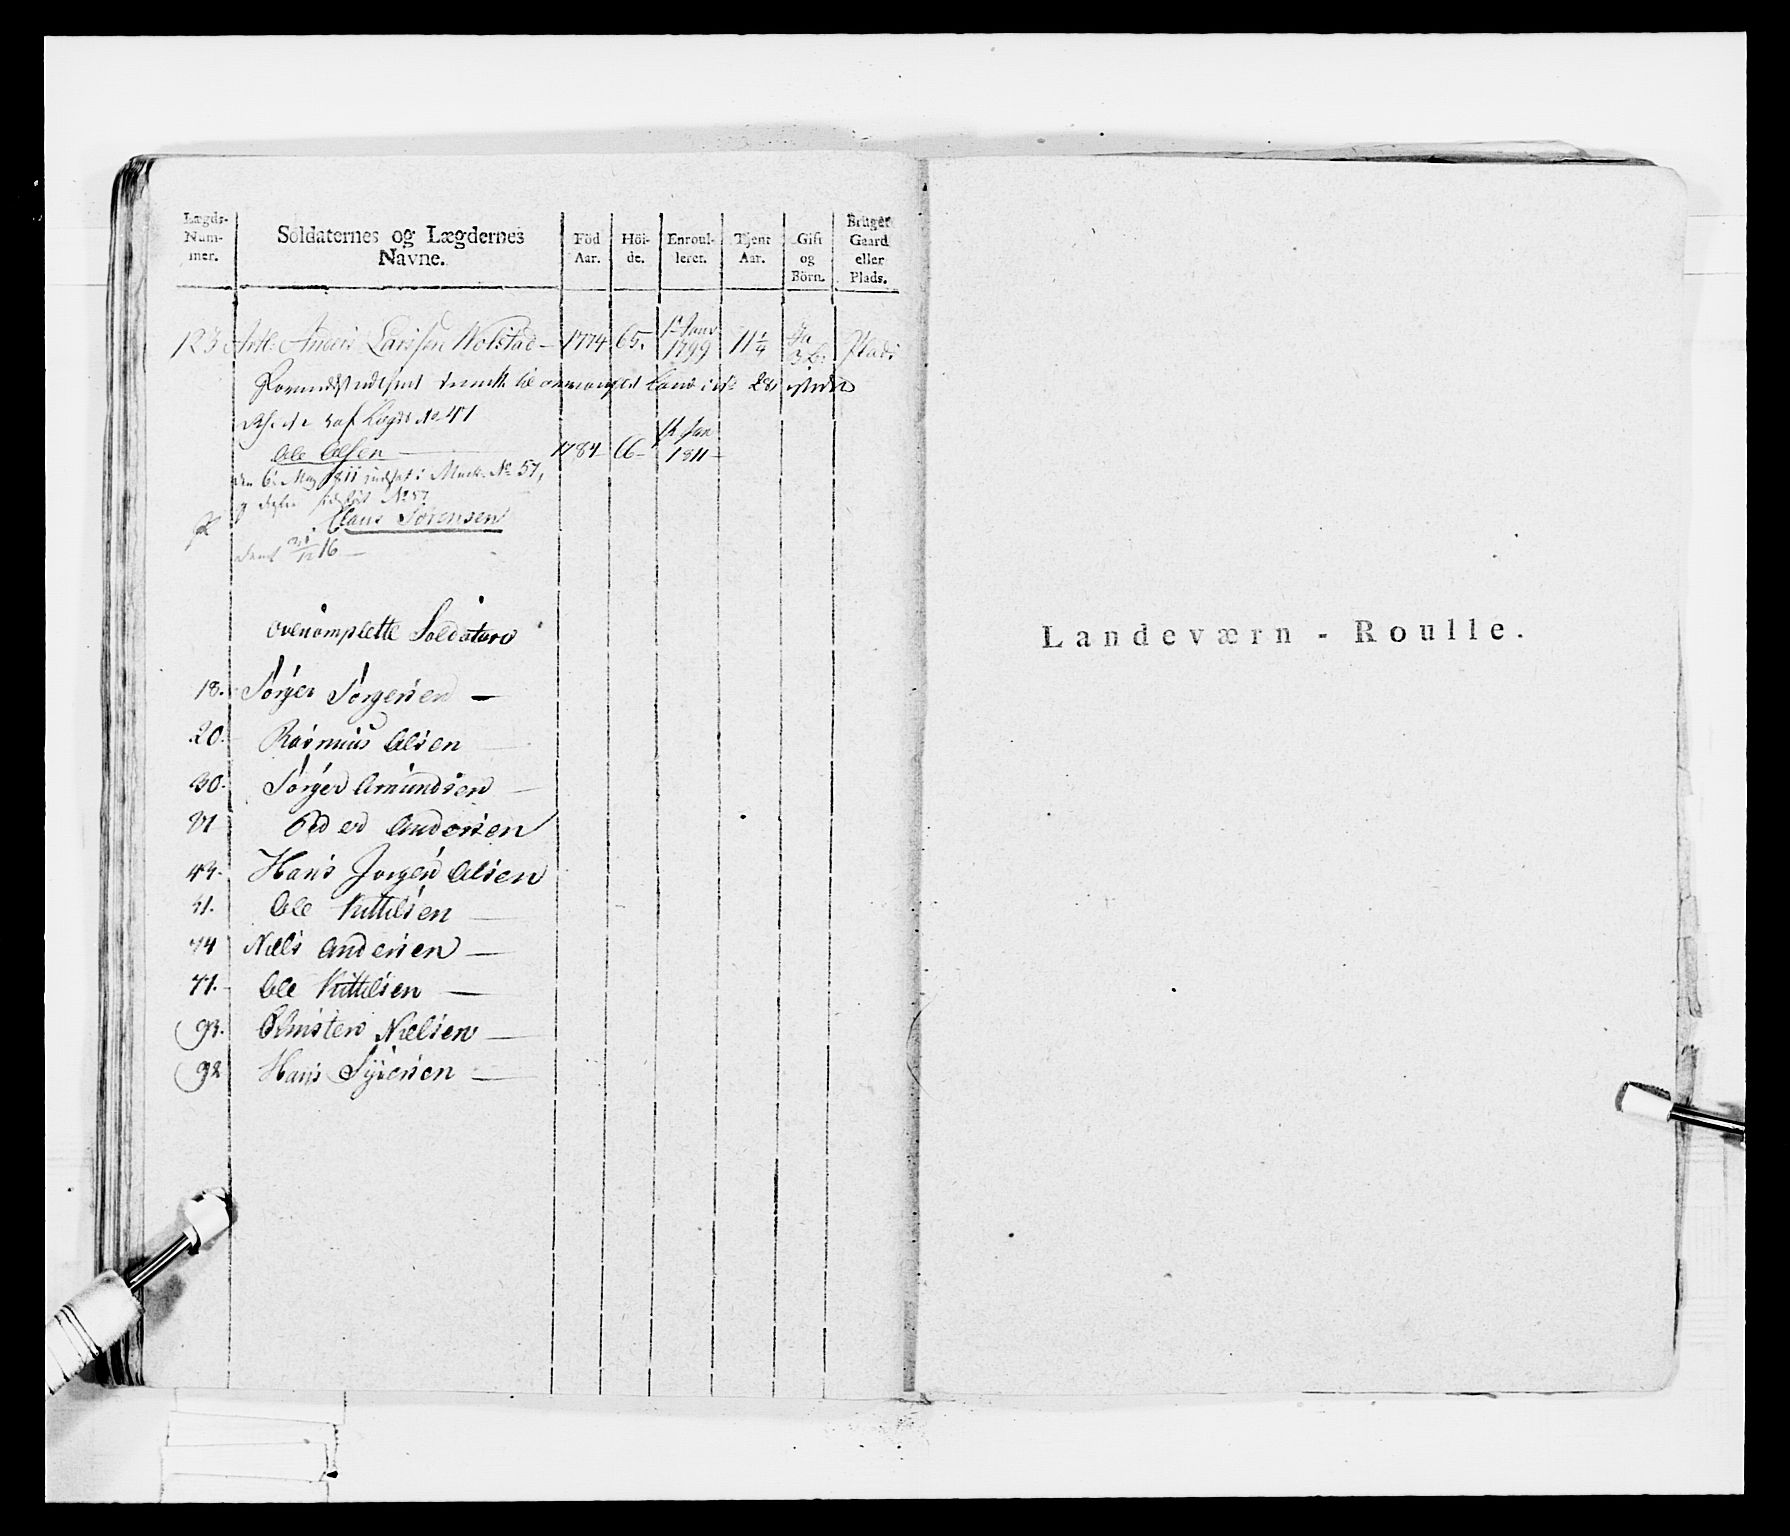 Lægds-
Num-
mer.
Soldaternes og Lægdernes
Navne.
Föd
Aar.
Höi-
de.
Enroul-
leret.
Tjent
Aar.
Gift
og
Börn.
Bruger
Gaard
eller
Plads.
123 Anders Larssen Wolstad — 1774 65. 1 Janr 1799 11 1/4 Ja 3 b: Plads
af Lægds No 41
Ole Olsen — 1784 66 — 1 Jan 1811 —
den 6 May 1811 indsat i No 57,
No 57
Claus Sörensen
31/12 16 —
overcomplette Soldater
18. Sörger Sörgensen —
20. Rasmus Olsen —
30. Sörger Amundsen —
Peder Andersen
43. Hans Jörgen Olsen
51. Ole Kittilsen —
74 Niels Andersen —
77. Ole Kittilsen —
93. Christen Nielsen —
98 Hans Syversen —
Landeværn - Roulle.